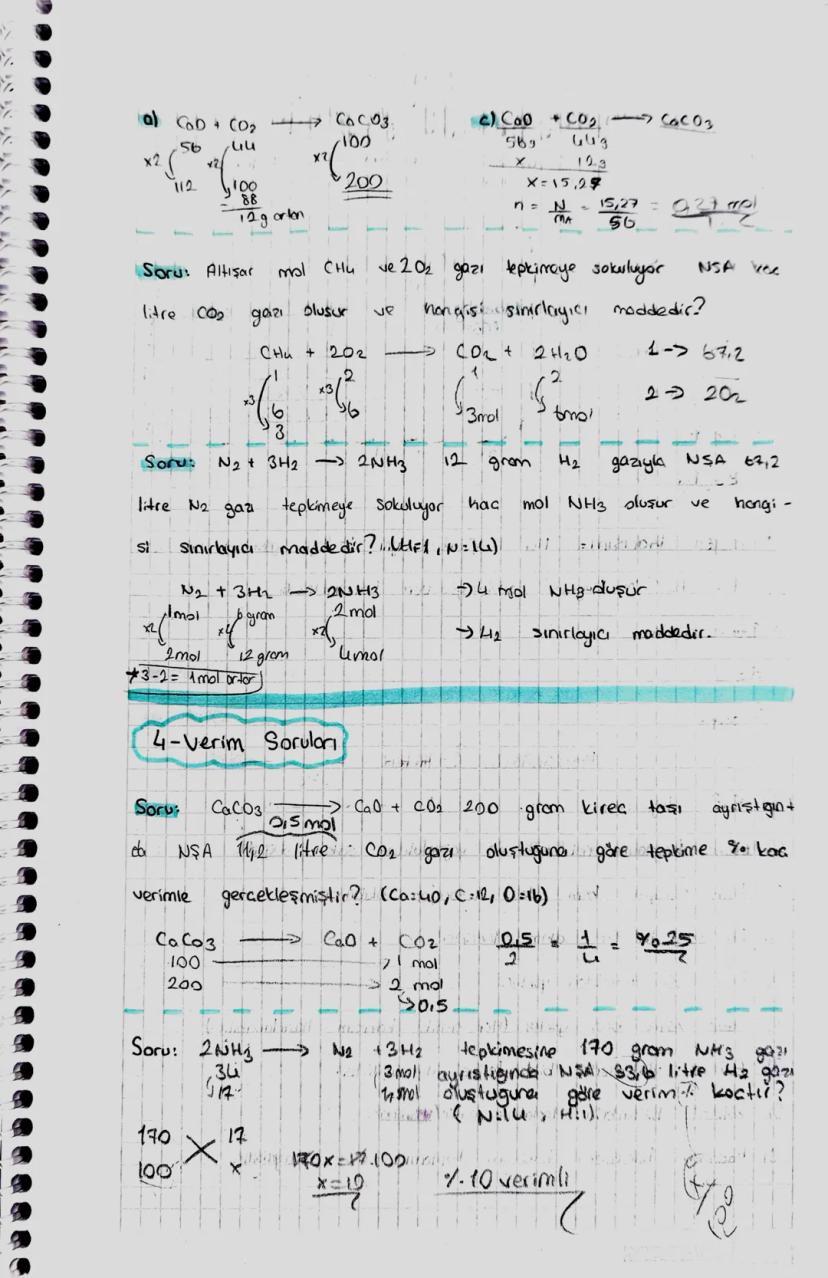 a) CaO + CO2 → CaCO3
c) CaO + CO2 → CaCO3
56 44 100
56g 44g
x2 x2 x2
x 12g
112 100 200
x = 15,27
88
12 g artan
n = N/MA = 15,27/56 = 0,27 mol
Soru: Altışar mol CH4 ve 2O2 gazı tepkimeye sokuluyor NŞA kac
litre CO2 gazı oluşur ve hangisi sınırlayıcı maddedir?
CH4 + 2O2 → CO2 + 2H2O 1-> 67,2
1 2 1 2
x3 x3 2-> 2O2
6 6 3mol 6mol
3
Soru: N2 + 3H2 → 2NH3 12 gram H2 gazıyla NŞA 67,2
litre N2 gazı tepkimeye sokuluyor kac mol NH3 oluşur ve hangi-
si sınırlayıcı maddedir? (H=1, N=14)
N2 + 3H2 → 2NH3 → 4 mol NH3 oluşur
1mol 6 gram 2mol
x2 x2 → H2 sınırlayıcı maddedir.
2mol 12 gram 4mol
*3-2 = 1mol artar
4-Verim Soruları
Soru: CaCO3 → CaO + CO2 200 gram kirec taşı ayrıştıgın+
0,5 mol
da NŞA 11,2 litre CO2 gazı oluştuğuna göre tepkime % kac
verimle gercekleşmiştir? (Ca:40, C:12, O:16)
CaCo3 → CaO + CO2 0,5/2 = 1/4 = %25
100 1 mol
200 2 mol
→ 0,5
Soru: 2NH3 → N2 + 3H2 tepkimesine 170 gram NH3 gazı
34 3mol ayrıştığında NŞA 33,6 litre H2 gazı
17 oluştuğuna göre verim % kactır?
(N:14, H:1)
170 17
100 x
170x = 17.100
x = 10
%10 verimli